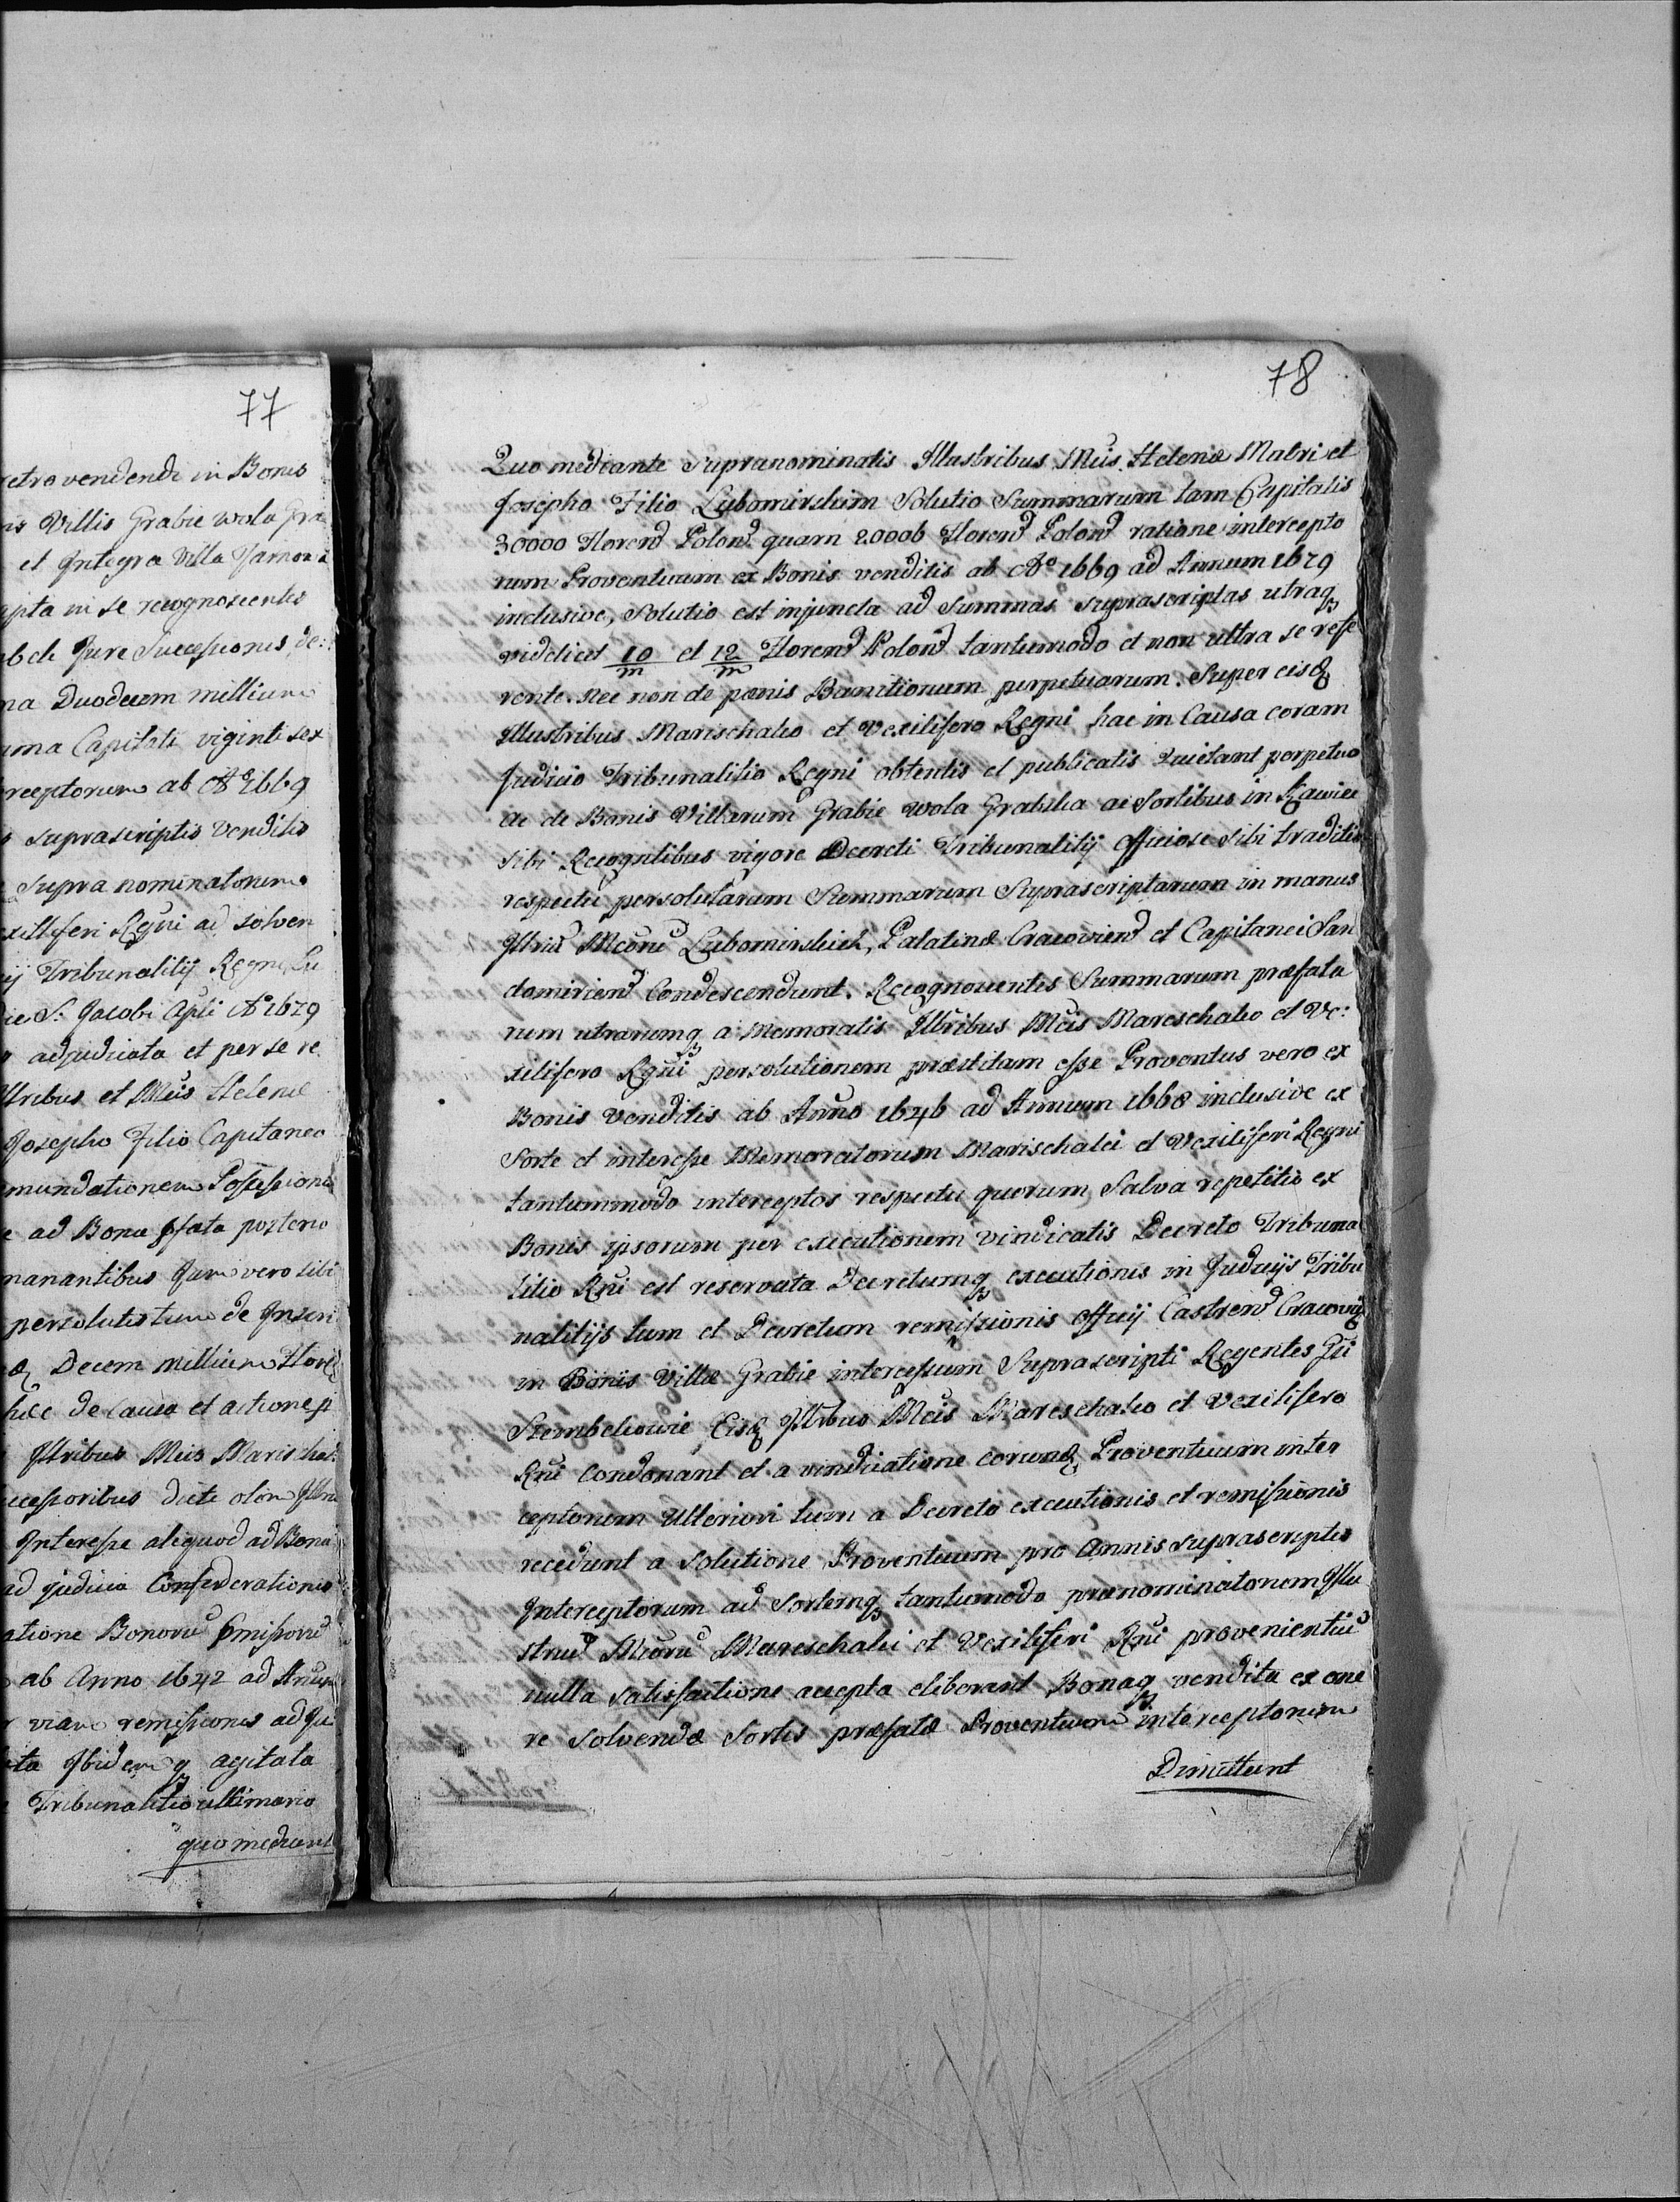 77
retro vendendi in Bonis
Villis Grabie wola Gra
et Integra Villa
in se recognoscentis
Jure Successionis de:
Duodecem millium
Capitali viginti sex
receptorum ab Aº 1669
suprascriptis Venditis
supra nominatorum
Regni ad solven
Tribunalitij Regni Lu
S: Jacobi Apli Aº 1679
adjudicata et per se re
et Mcis Helenæ
Josepho Filio Capitaneo
Possessionis
ad Bona pfata
manantibus Jam vero sibi
persolutis tum de
Decem millium
de Causa et actione
Illribus Mcis
dicti olim
Interesse aliquod ad Bona
ad judicia Confederationis
Bonorū
ab Anno 1642 ad
viam remissionis ad Ju
Ibidemq agitata
Tribunalitio ultimario
quo mediant
78
Quo mediante supranominatis Illustribus Mcis Helenæ Matri et
Josepho Filio Lubomirskim Solutio Summarum tam Capitalis
30000 Floren Polon quam 20006 Floren Polon ratione intercepto
rum Proventuum ex Bonis venditis ab Aº 1669 ad Annum 1679
inclusive, Solutio est injuncta ad Summas suprascriptas utraq
videlicet 10/m et 12/m Floren Polon tantumodo et non ultra se refe
rente. nec non de pænis Bannitionum perpetuarum. Super eisd
Illustribus Marischalco et Vexilifero Regni hac in Causa coram
Judicio Tribunalitio Regni obtentis et publicatis quietant perpetuo
ac de Bonis Villarum Grabie wola Grabska ac Sortibus in
sibi vigore Decreti Tribunalitij officiose sibi traditis
respectu persolutarum Summarum Suprascriptarum in manus
Lubomirskich, Palatinæ Cracovien et Capitanei San
domirien Condescendunt. Recognoventis Summarum præfata
rum utrarumq a memoratis Illribus Mcis Mareschalco et Ve:
xilifero Rgni persolutionem præstitam esse Proventus vero ex
Bonis venditis ab Anno 1646 ad Annum 1668 inclusive ex
Sorte et interesse Memoratorum Marischalci et Vexiliferi Regni
tantummodo interceptos respectu quorum Salva repetitio ex
Bonis ipsorum per executionem vindicatis Decreto Tribuna
litio Rni est reservata Decretumq executionis in Judicijs Tribu
nalitijs tum et Decretum remissionis officij Castren
in Bonis Villæ Grabie intercessum Suprascripti Regentes
Eisd Illribus Mcis Mareschalco et Vexilifero
Rni Condonant et a vindicatione eorund Proventuum inter
ceptorum Ulteriori tum a Decreto executionis et remissionis
recedunt a Solutione Proventuum pro Annis suprascriptis
Interceptorum ad Sortemq tantumodo prænominatorum Illu
striū Mcorū Mareschalci et Vexiliferi Rni provenientiū
nulla satisfactione accepta eliberant Bonaq vendita ex one
re solvendæ Sortis præfatæ Proventuum interceptorum
Dimittunt